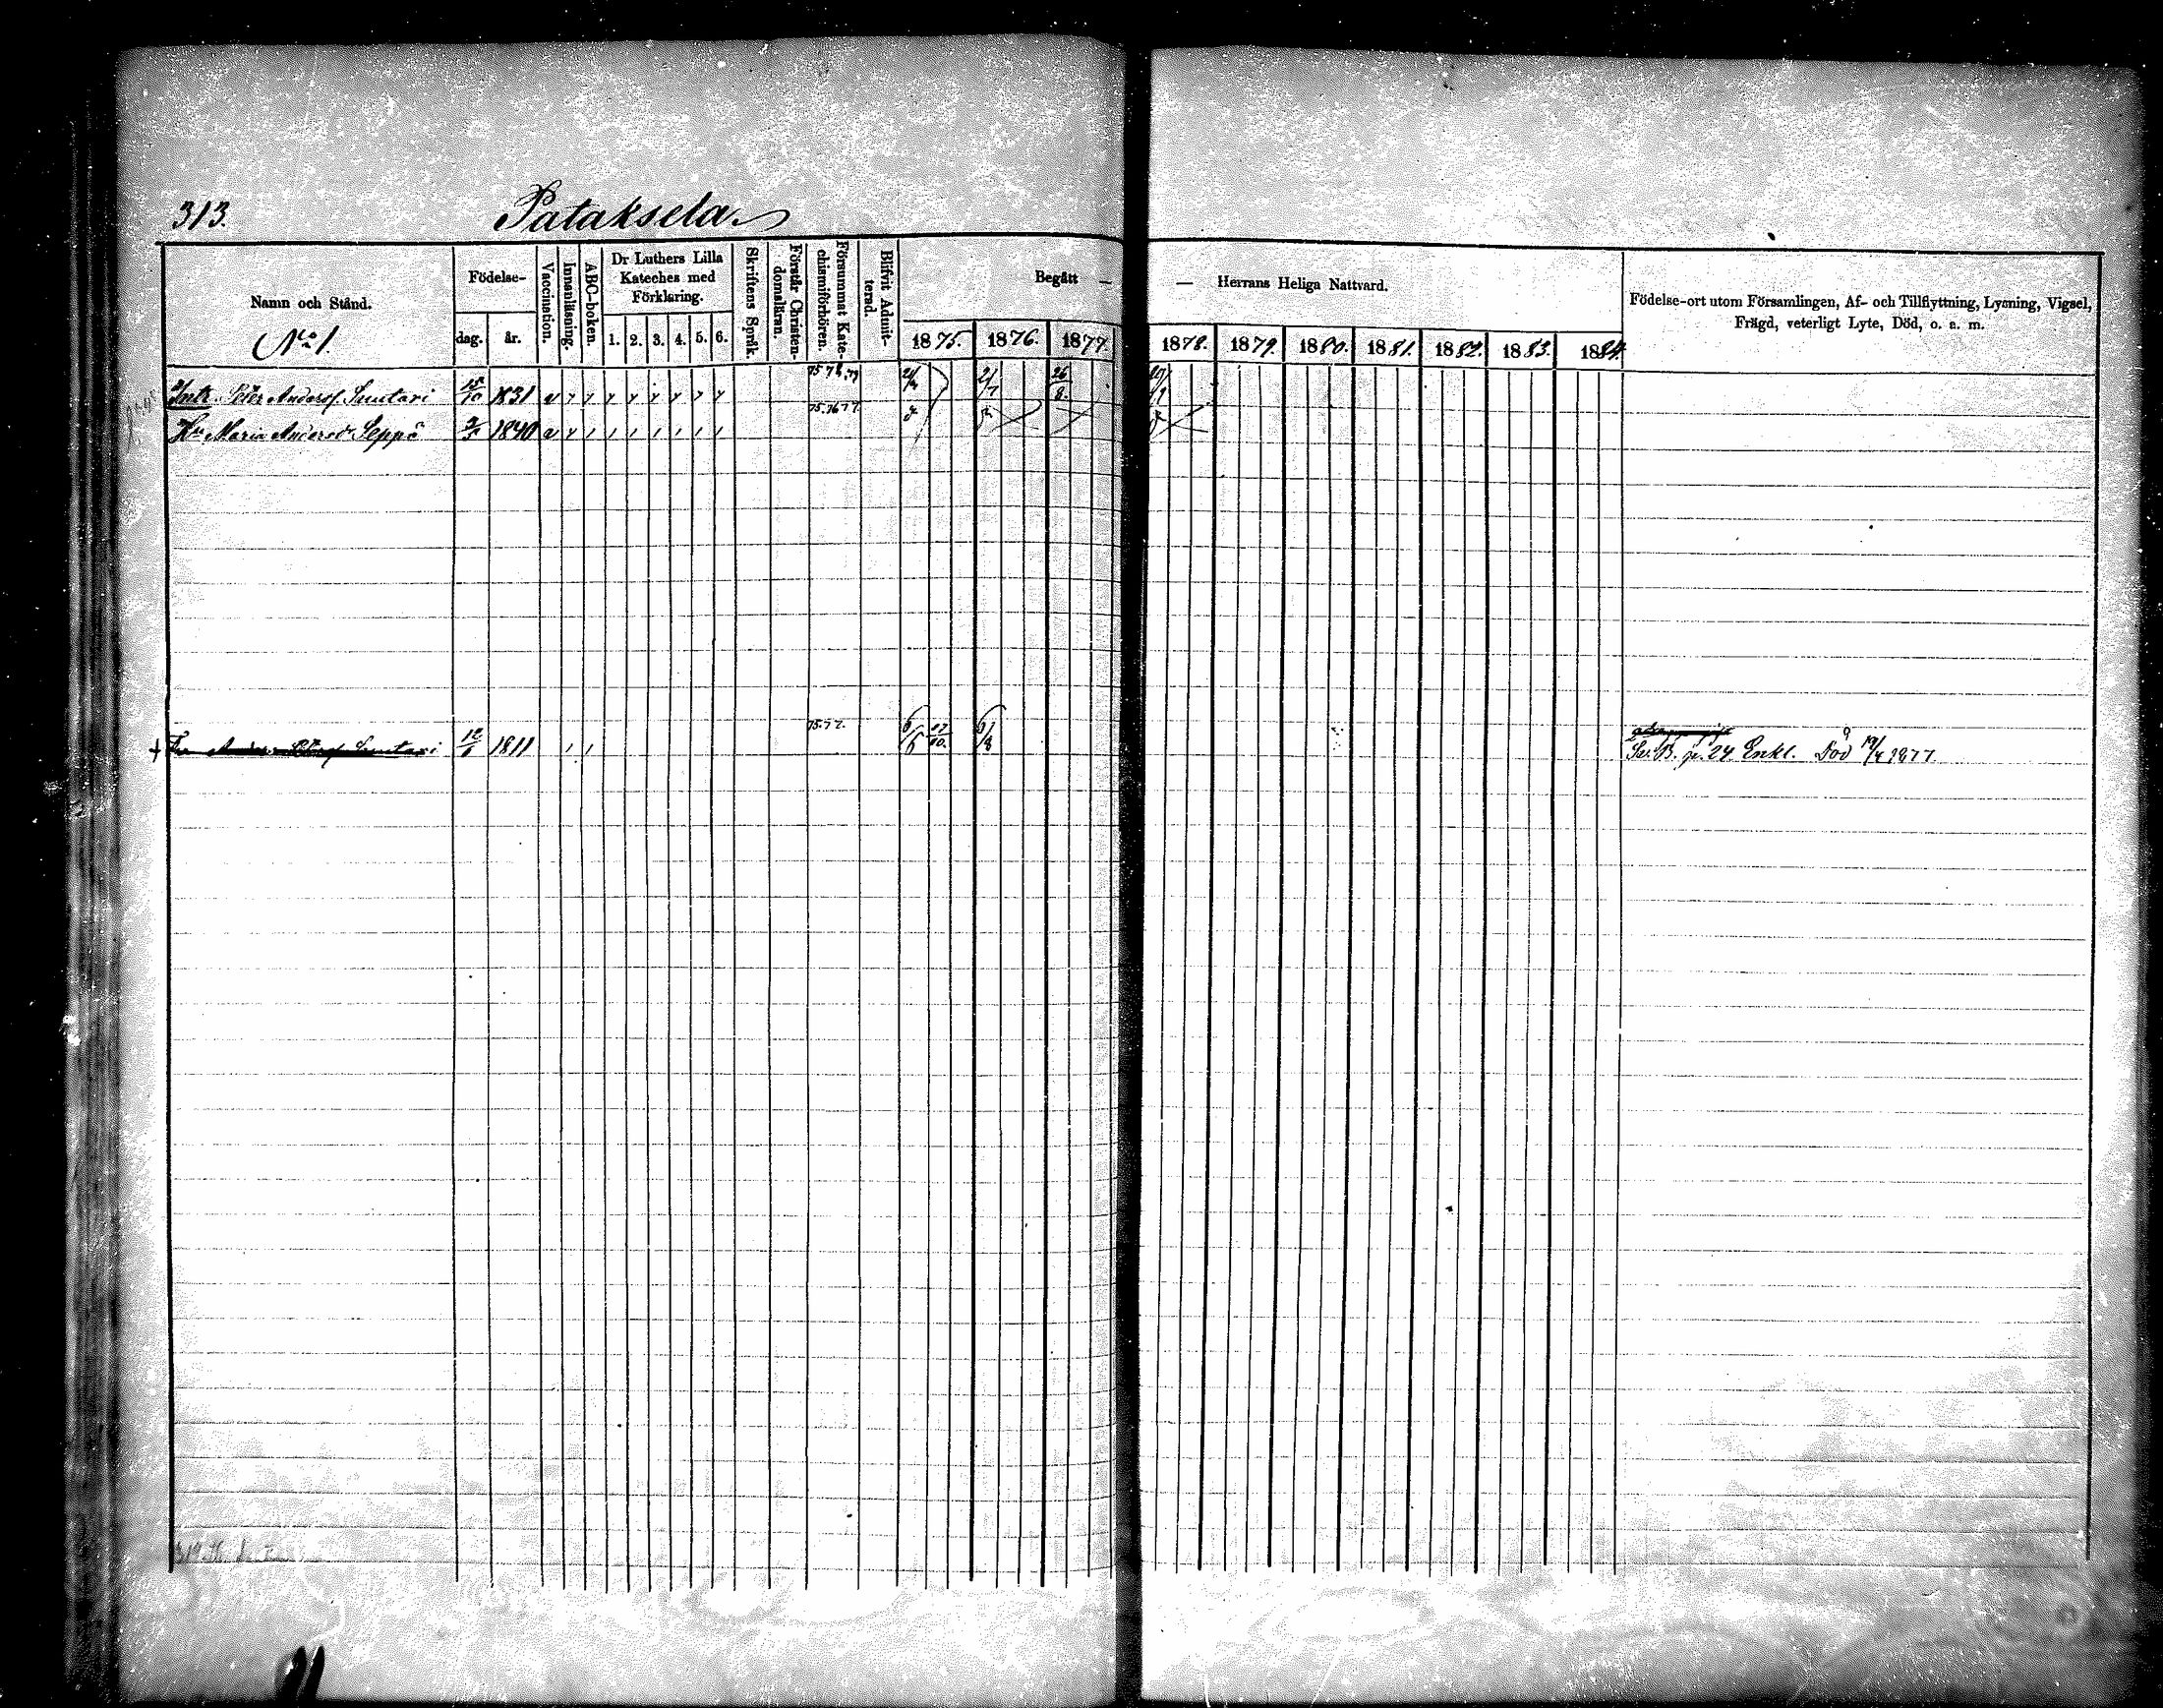 313. Pataksela.
Namn och Stånd.
No 1.
Födelse-
dag. år.
Vaccination.
Innanläsning.
ABC-boken.
Dr Luthers Lilla
Kateches med
Förklaring.
1. 2. 3. 4. 5. 6.
Skriftens Språk.
Förstår Christen-
domsläran.
Försummat Kate-
chismiförhören.
Blifvit Admit-
terad.
Begått —
— Herrans Heliga Nattvard.
1875. 1876. 1877. 1878. 1879. 1880. 1881. 1882. 1883. 1884.
Födelse-ort utom Församlingen, Af- och Tillflyttning, Lysning, Vigsel,
Frägd, veterligt Lyte, Död, o. s. m.
Peter Anderss. Suutari 15/10 1831 75. 78, 79 2/7 26/8.
Hu Maria Andersdr Seppä 1840 75. 76 77
Suutari 1811 75. 77. 6/6 6/8
p. 24 Enkl. Död 19/4 1877.